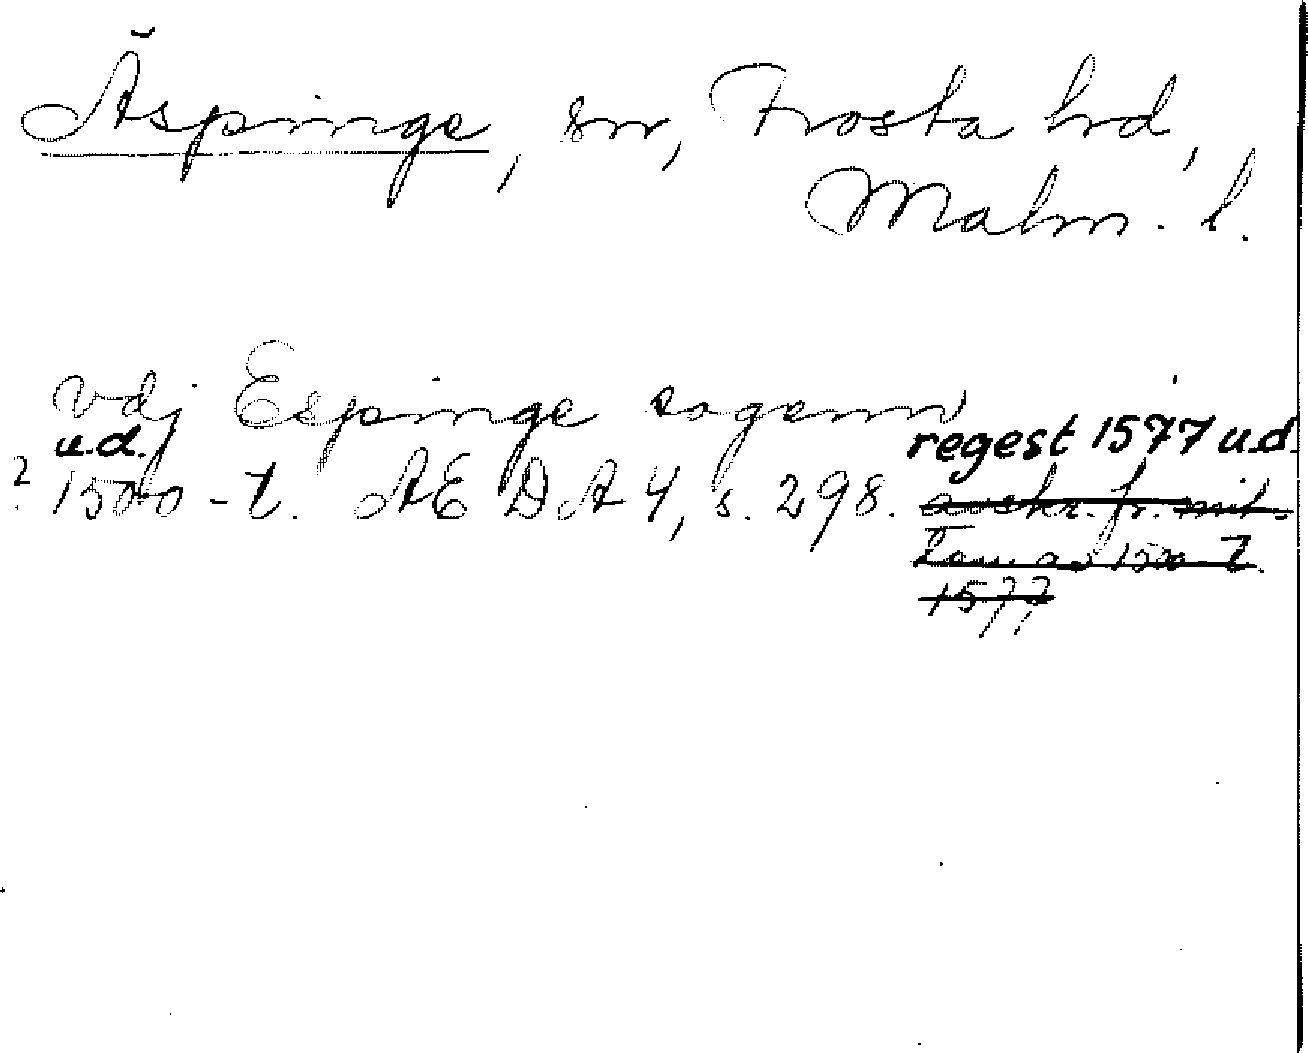 Äspinge, sn, Frosta hrd,
Malm. l.
vdj Espinge sogenn
u.d. regest 1577 u.d.
? 1500-t. AEDA 4, s. 298. avskr. fr. mit-
1500-t.
1577